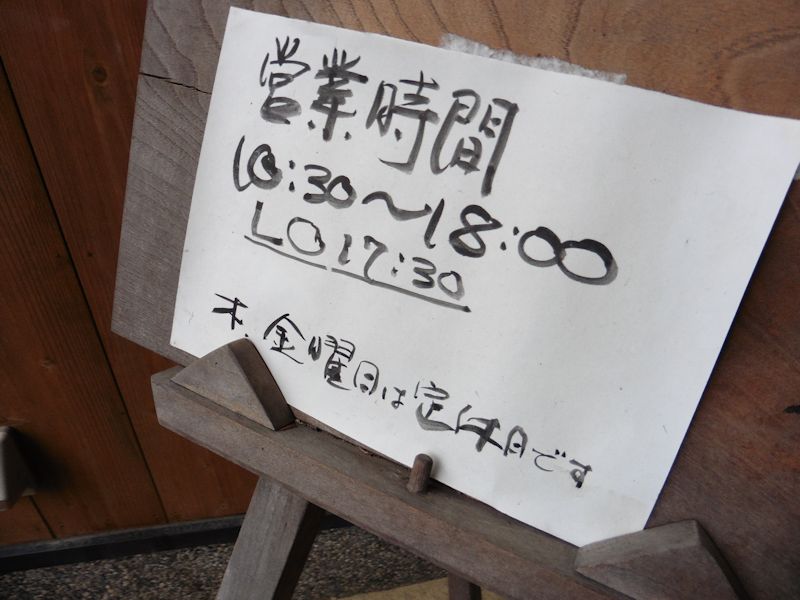 営業時間
10:30〜18:00
LO 17:30
木.金曜日は定休日です